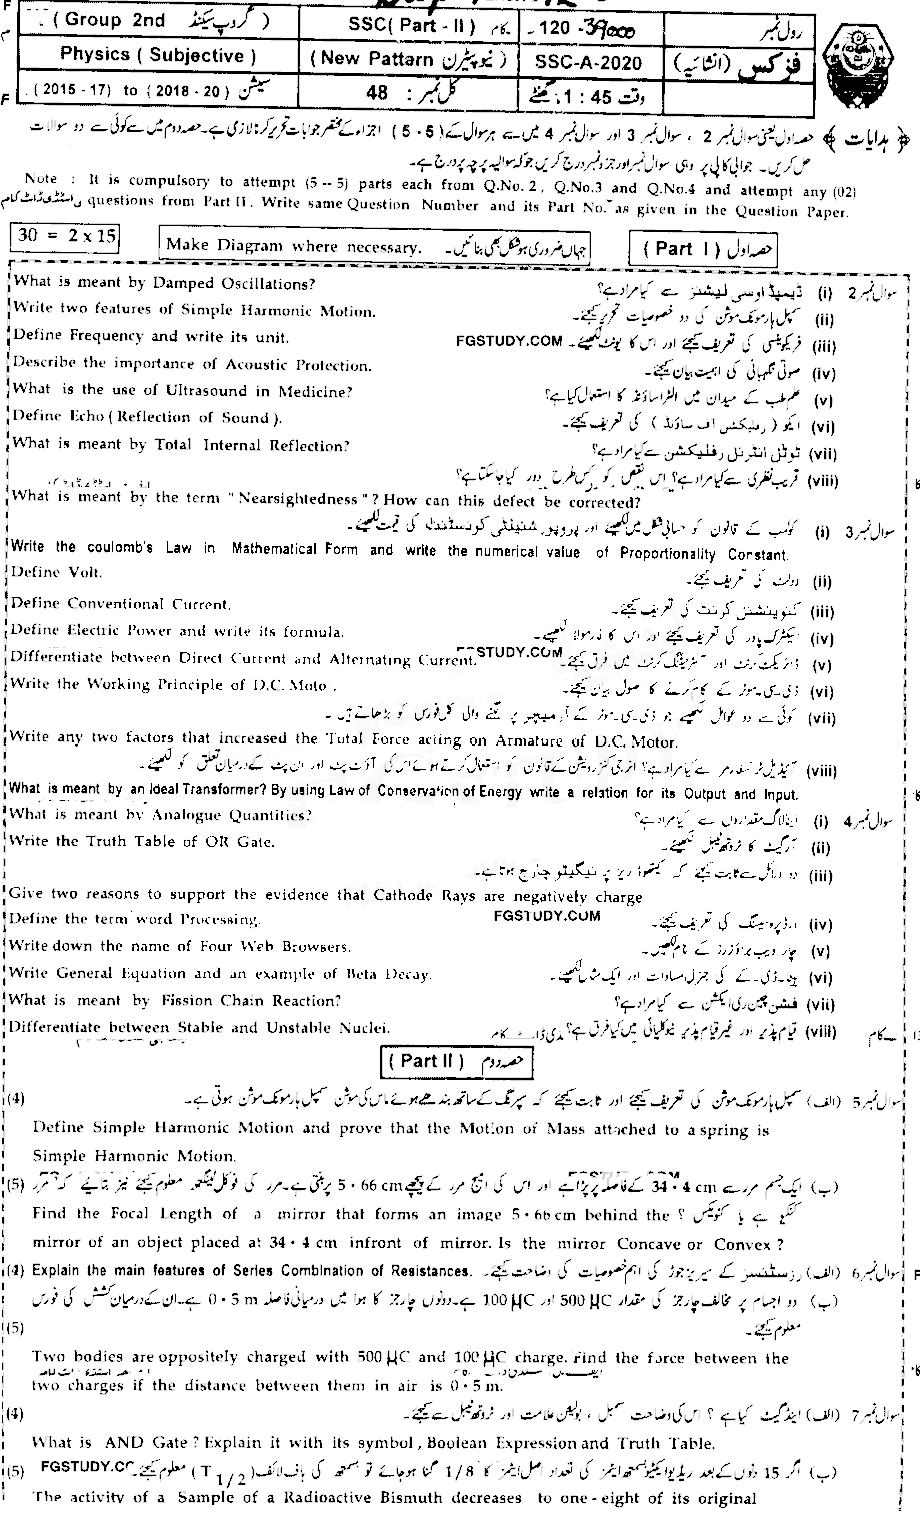 ( Group 2nd گروپ سیکنڈ ) SSC( Part - II ) کام - 120 -39000 رول نمبر
Physics ( Subjective ) ( New Pattarn نیو پیٹرن ) SSC-A-2020 فزکس (انشائیہ)
. ( 2015 - 17) to ( 2018 - 20 ) سیشن کل نمبر : 48 وقت 1 : 45 گھنٹے
﴿ ہدایات ﴾ حصہ اول یعنی سوال نمبر 2 ، سوال نمبر 3 اور سوال نمبر 4 میں سے ہر سوال کے ( 5 - 5 ) اجزاء کے مختصر جوابات تحریر کرنا لازمی ہے۔ حصہ دوم میں سے کوئی سے دو سوالات
حل کریں۔ جوابی کاپی پر وہی سوال نمبر اور جز نمبر درج کریں جو کہ سوالیہ پرچہ پر درج ہے۔
Note : It is compulsory to attempt (5 -- 5) parts each from Q.No. 2 , Q.No.3 and Q.No.4 and attempt any (02)
questions from Part II. Write same Question Number and its Part No. as given in the Question Paper.
30 = 2 x 15 Make Diagram where necessary. جہاں ضروری ہو شکل بھی بنائیں۔ ( Part I ) حصہ اول
What is meant by Damped Oscillations? سوال نمبر 2 (i) ڈیمپڈ اوسی لیشنز سے کیا مراد ہے؟
Write two features of Simple Harmonic Motion. (ii) سمپل ہارمونک موشن کی دو خصوصیات تحریر کیجئے۔
Define Frequency and write its unit. FGSTUDY.COM (iii) فریکوئنسی کی تعریف کیجئے اور اس کا یونٹ لکھیئے۔
Describe the importance of Acoustic Protection. (iv) صوتی نگہبانی کی اہمیت بیان کیجئے۔
What is the use of Ultrasound in Medicine? (v) علم طب کے میدان میں الٹراساؤنڈ کا استعمال کیا ہے؟
Define Echo ( Reflection of Sound ). (vi) ایکو ( رفلیکشن آف ساؤنڈ ) کی تعریف کیجئے۔
What is meant by Total Internal Reflection? (vii) ٹوٹل انٹرنل رفلیکشن سے کیا مراد ہے؟
(viii) قریب نظری سے کیا مراد ہے؟ اس نقص کو کس طرح دور کیا جا سکتا ہے؟
What is meant by the term " Nearsightedness " ? How can this defect be corrected?
سوال نمبر 3 (i) کولمب کے قانون کو حسابی شکل میں لکھیئے اور پروپورشنیلٹی کونسٹنٹ کی قیمت لکھیئے۔
Write the coulomb's Law in Mathematical Form and write the numerical value of Proportionality Constant.
Define Volt. (ii) وولٹ کی تعریف کیجئے۔
Define Conventional Current. (iii) کنوینشنل کرنٹ کی تعریف کیجئے۔
Define Electric Power and write its formula. (iv) الیکٹرک پاور کی تعریف کیجئے اور اس کا فارمولا لکھیئے۔
Differentiate between Direct Current and Alternating Current. STUDY.COM (v) ڈائریکٹ کرنٹ اور آلٹرنیٹنگ کرنٹ میں فرق کیجئے۔
Write the Working Principle of D.C. Moto . (vi) ڈی۔سی۔ موٹر کے کام کرنے کا اصول بیان کیجئے۔
(vii) کوئی سے دو عوامل لکھیئے جو ڈی۔سی۔ موٹر کے آرمیچر پر لگنے والی کل فورس کو بڑھاتے ہیں۔
Write any two factors that increased the Total Force acting on Armature of D.C. Motor.
(viii) آئیڈیل ٹرانسفارمر سے کیا مراد ہے؟ انرجی کنزرویشن کے قانون کو استعمال کرتے ہوئے اس کی آؤٹ پٹ اور ان پٹ کے درمیان تعلق کو لکھیئے۔
What is meant by an Ideal Transformer? By using Law of Conservation of Energy write a relation for its Output and Input.
What is meant by Analogue Quantities? سوال نمبر 4 (i) اینالاگ مقداروں سے کیا مراد ہے؟
Write the Truth Table of OR Gate. (ii) آر گیٹ کا ٹروتھ ٹیبل لکھیئے۔
(iii) دو دلائل سے ثابت کیجئے کہ کیتھوڈ ریز پر نیگیٹو چارج ہوتا ہے۔
Give two reasons to support the evidence that Cathode Rays are negatively charge
Define the term word Processing. FGSTUDY.COM (iv) ورڈ پروسیسنگ کی تعریف کیجئے۔
Write down the name of Four Web Browsers. (v) چار ویب براؤزرز کے نام لکھیں۔
Write General Equation and an example of Beta Decay. (vi) بیٹا۔ڈی۔کے کی جنرل مساوات اور ایک مثال لکھیئے۔
What is meant by Fission Chain Reaction? (vii) فشن چین ری ایکشن سے کیا مراد ہے؟
Differentiate between Stable and Unstable Nuclei. (viii) قیام پذیر اور غیر قیام پذیر نیوکلیائی میں کیا فرق ہے؟
( Part II ) حصہ دوم
(4) سوال نمبر 5 (الف) سمپل ہارمونک موشن کی تعریف کیجئے اور ثابت کیجئے کہ سپرنگ کے ساتھ بندھے ہوئے ماس کی موشن سمپل ہارمونک موشن ہوتی ہے۔
Define Simple Harmonic Motion and prove that the Motion of Mass attached to a spring is
Simple Harmonic Motion.
(5) (ب) ایک جسم مرر سے 34 · 4 cm کے فاصلہ پر پڑا ہے اور اس کی امیج مرر کے پیچھے 5 · 66 cm پر بنتی ہے۔ مرر کی فوکل لینگتھ معلوم کیجئے نیز بتائیے کہ مرر
Find the Focal Length of a mirror that forms an image 5 · 66 cm behind the کنکیو ہے یا کنویکس ؟
mirror of an object placed at 34 · 4 cm infront of mirror. Is the mirror Concave or Convex ?
(4) Explain the main features of Series Combination of Resistances. سوال نمبر 6 (الف) رزسٹنسز کے سیریز جوڑ کی اہم خصوصیات کی وضاحت کیجئے۔
(ب) دو اجسام پر مخالف چارجز کی مقدار 500 µC اور 100 µC ہے۔ دونوں چارجز کا ہوا میں درمیانی فاصلہ 0 · 5 m ہے۔ ان کے درمیان کشش کی فورس
(5) معلوم کیجئے۔
Two bodies are oppositely charged with 500 µC and 100 µC charge. Find the force between the
two charges if the distance between them in air is 0 · 5 m.
(4) سوال نمبر 7 (الف) اینڈ گیٹ کیا ہے ؟ اس کی وضاحت سمبل ، بولین علامت اور ٹروتھ ٹیبل سے کیجئے۔
What is AND Gate ? Explain it with its symbol , Boolean Expression and Truth Table.
(5) FGSTUDY.C (ب) اگر 15 دنوں کے بعد ریڈیو ایکٹیو بسمتھ ایٹمز کی تعداد اصل ایٹمز کا 1/8 گنا ہو جائے تو بسمتھ کی ہاف لائف ( T 1/2 ) معلوم کیجئے۔
The activity of a Sample of a Radioactive Bismuth decreases to one - eight of its original